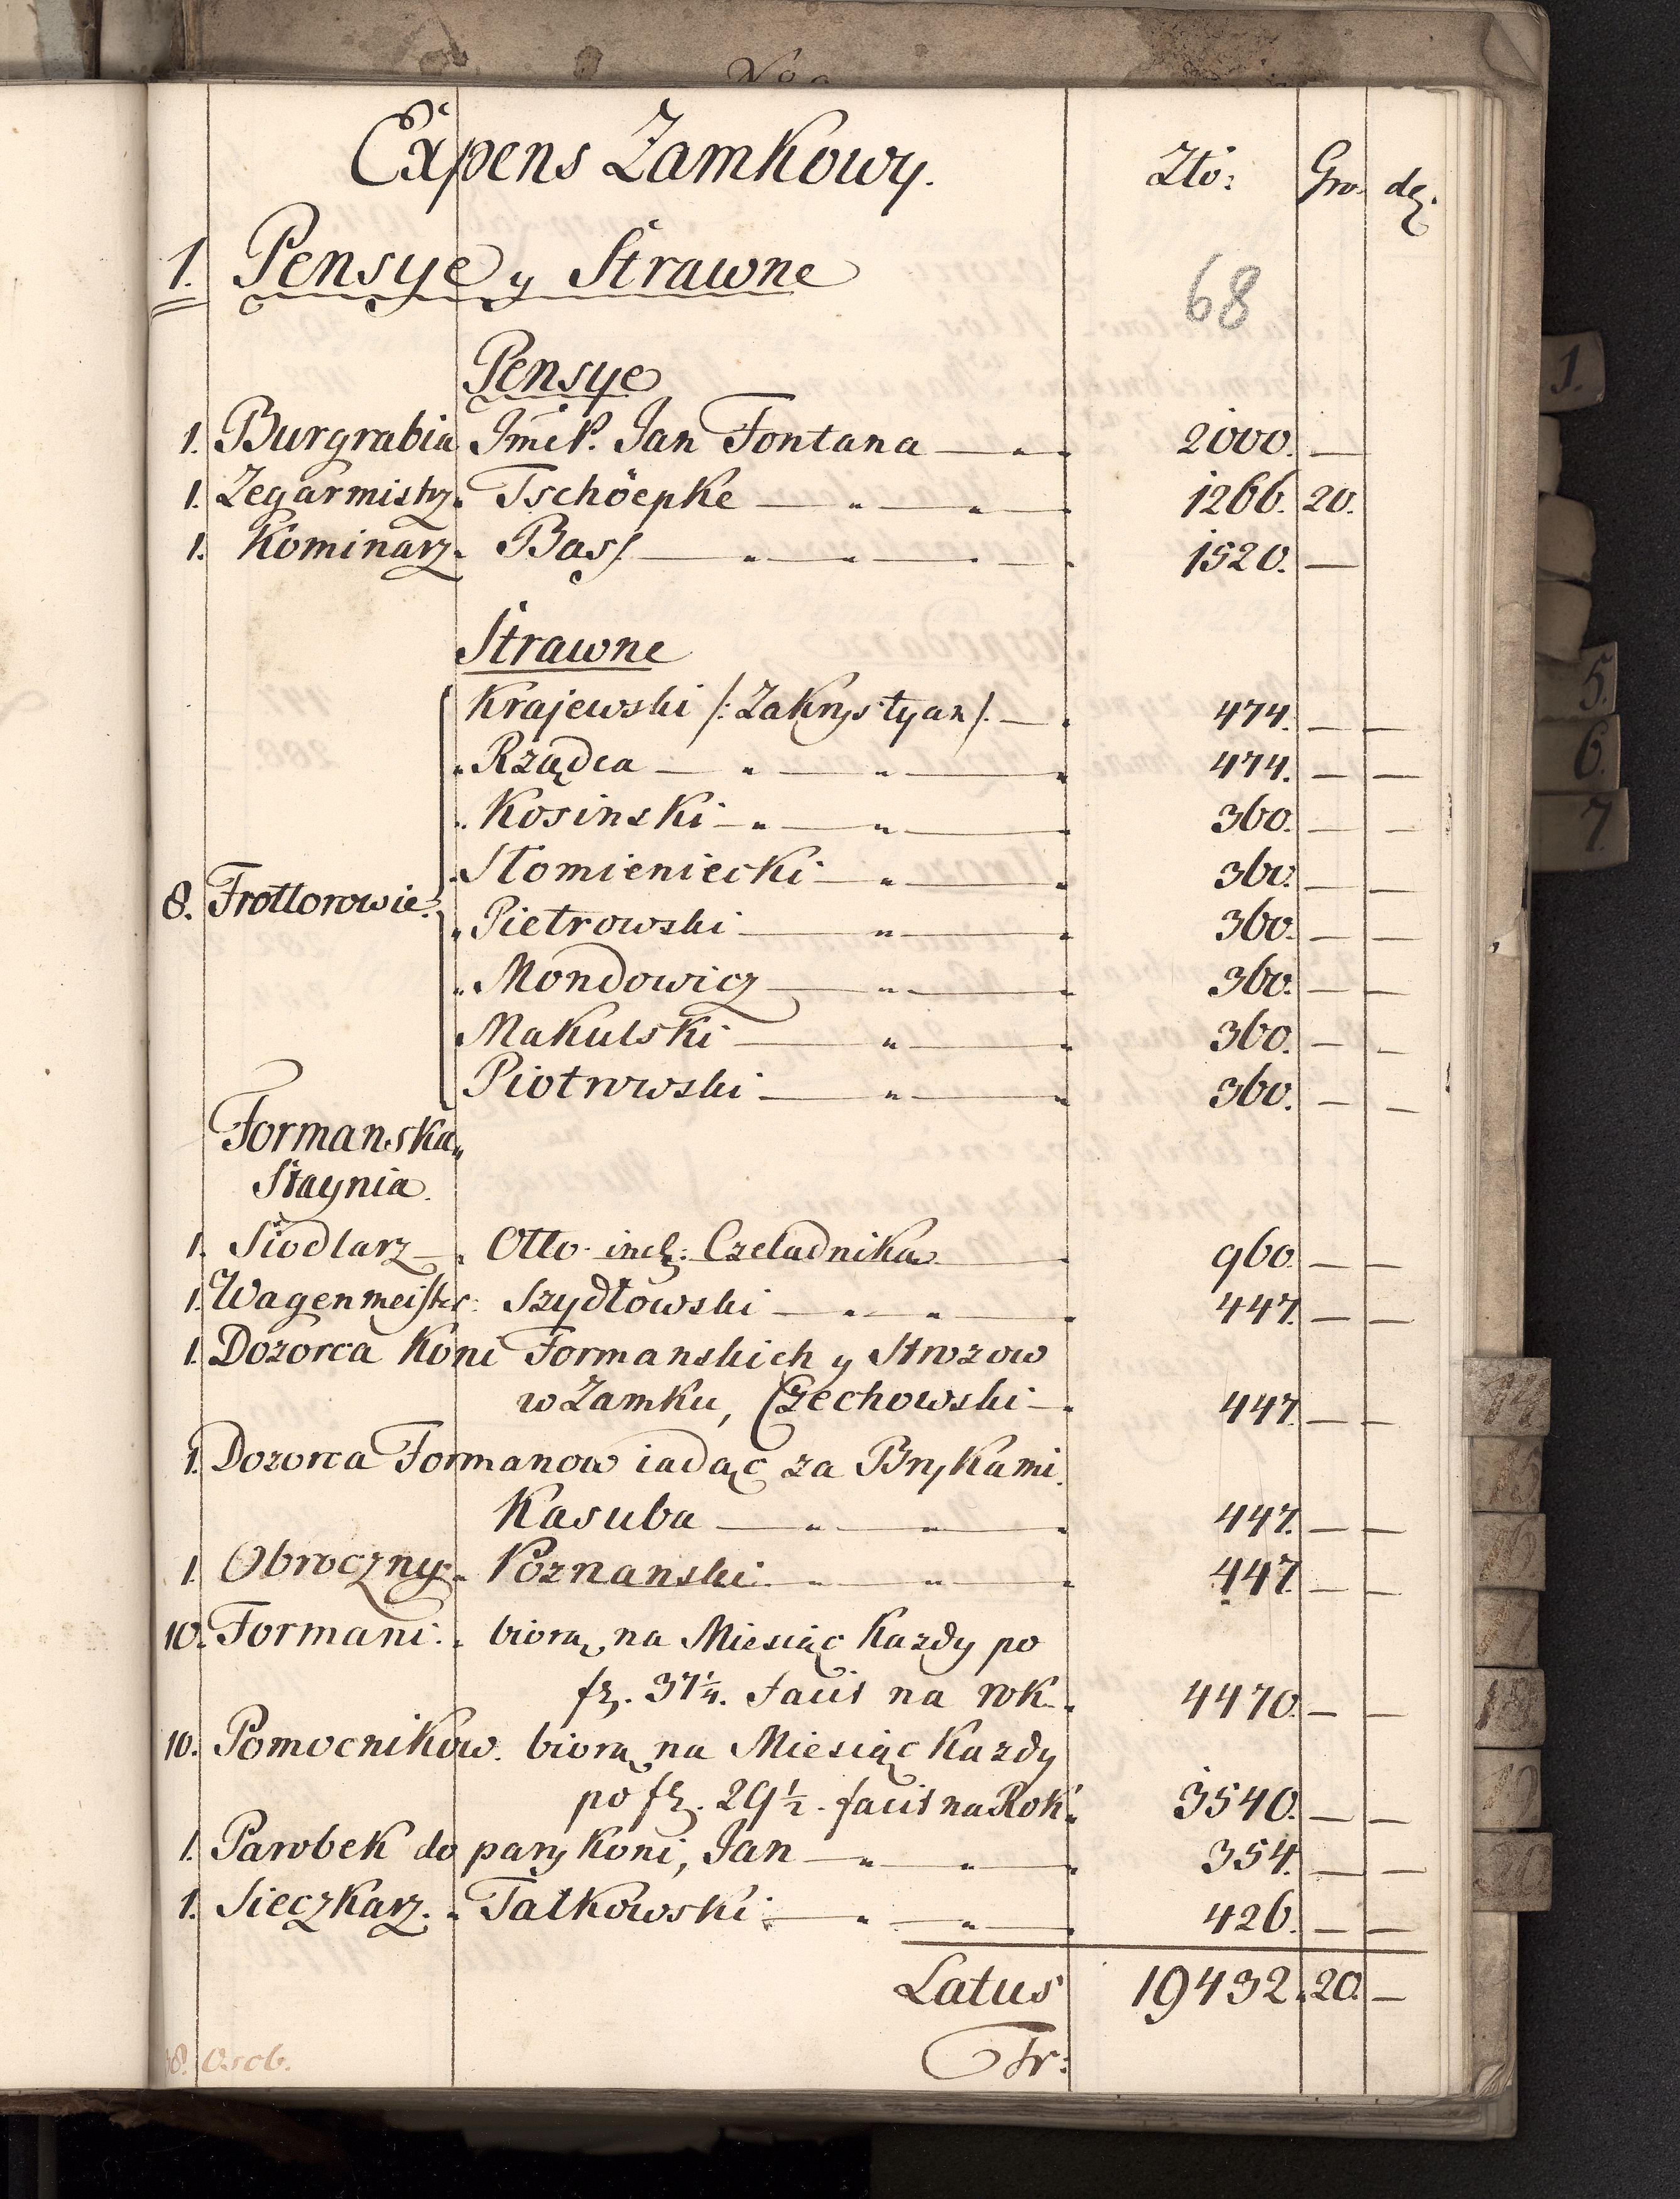 Expens Zamkowy. Zło: Gro. dę.
1. Pensye y Strawne 68
Pensye
1. Burgrabia Jmć P. Jan Fontana 2000. —
1. Zegarmistrz. Tschöepke 1266. 20.
1. Kominarz. Bass 1520. —
Strawne
Krajewski /: Zakrystyan /. 474. — —
Rządca 474. — —
Kosinski 360. — —
Słomieniecki 360. — —
8. Frotlorowie. Pietrowski 360. — —
Mondowicz 360. — —
Makulski 360. — —
Piotrowski 360. — —
Formanska
Staynia.
1. Siodlarz Otto incl: Czeladnika 960. — —
1. Wagenmeister: Szydłowski 447. — —
1. Dozorca Koni Formanskich y Strozow
w Zamku, Czechowski 447. — —
1. Dozorca Formanow iadąc za Brykami.
Kasuba 447. — —
1. Obroczny. Poznanski 447. — —
10. Formani. biorą na Miesiąc Kazdy po
fz. 37¼. facit na rok. 4470. — —
10. Pomocnikow. biorą na Miesiąc Kazdy
po fz. 29½. facit na Rok. 3540. — —
1. Parobek do pary Koni, Jan 354. — —
1. Sieczkarz. Tatkowski 426. — —
Latus 19432. 20. —
Tr:
8. Osob.
1.
5.
6.
7.
14
15
16
17
18
19
20